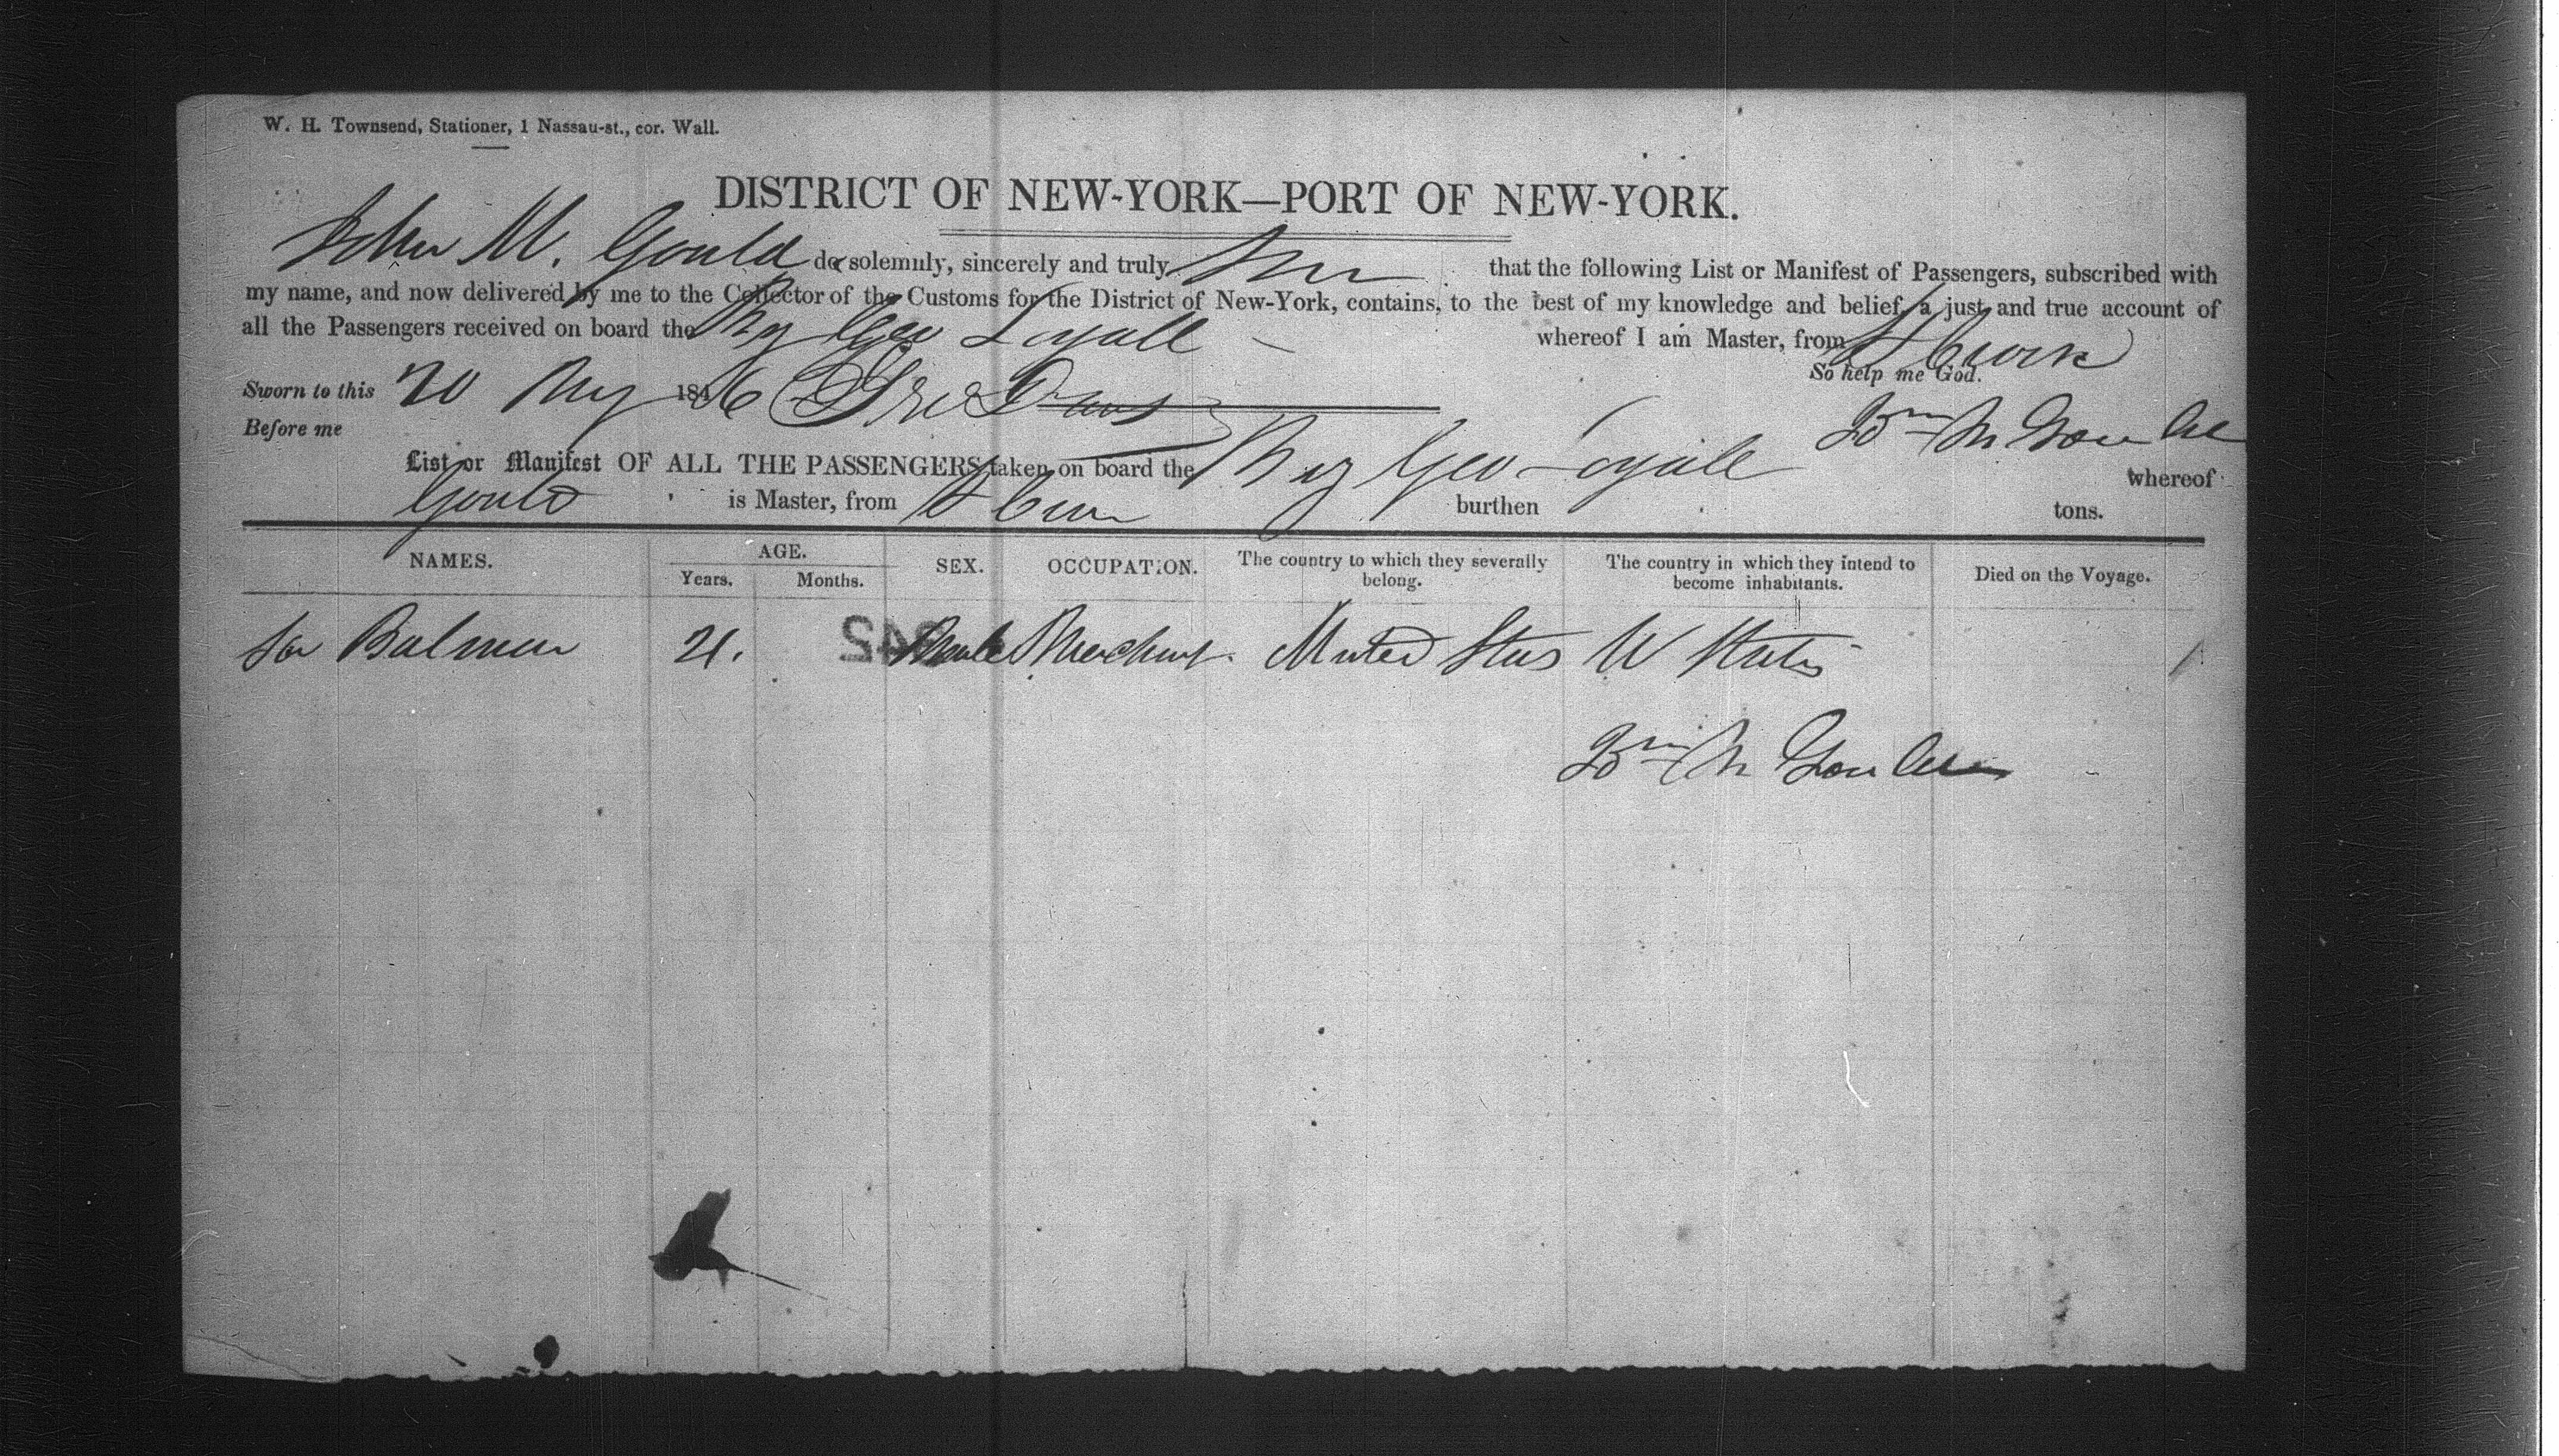 W. H. Townsend, Stationer, 1 Nassau-st., cor. Wall.
DISTRICT OF NEW-YORK—PORT OF NEW-YORK.
John M. Gould do solemnly, sincerely and truly that the following List or Manifest of Passengers, subscribed with
my name, and now delivered by me to the Collector of the Customs for the District of New-York, contains, to the best of my knowledge and belief, a just and true account of
all the Passengers received on board the Geo Lyall whereof I am Master, from
So help me God.
Sworn to this 20 1846
Before me
List or Manifest OF ALL THE PASSENGERS taken on board the Geo whereof
Gould is Master, from burthen tons.
NAMES. AGE. SEX. OCCUPATION. The country to which they severally belong. The country in which they intend to become inhabitants. Died on the Voyage.
Years. Months.
21. Male Merchant United States U States
542